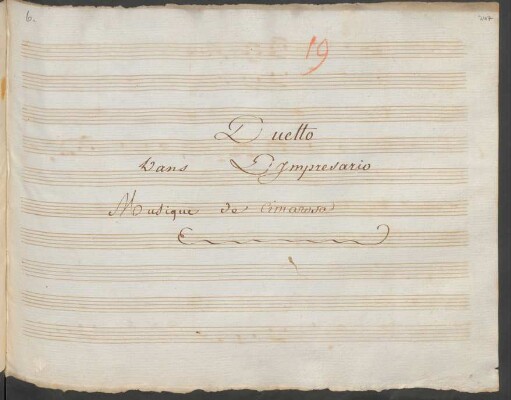 6.
19
Duetto
Dans L'Impresario
Musique de Cimarosa